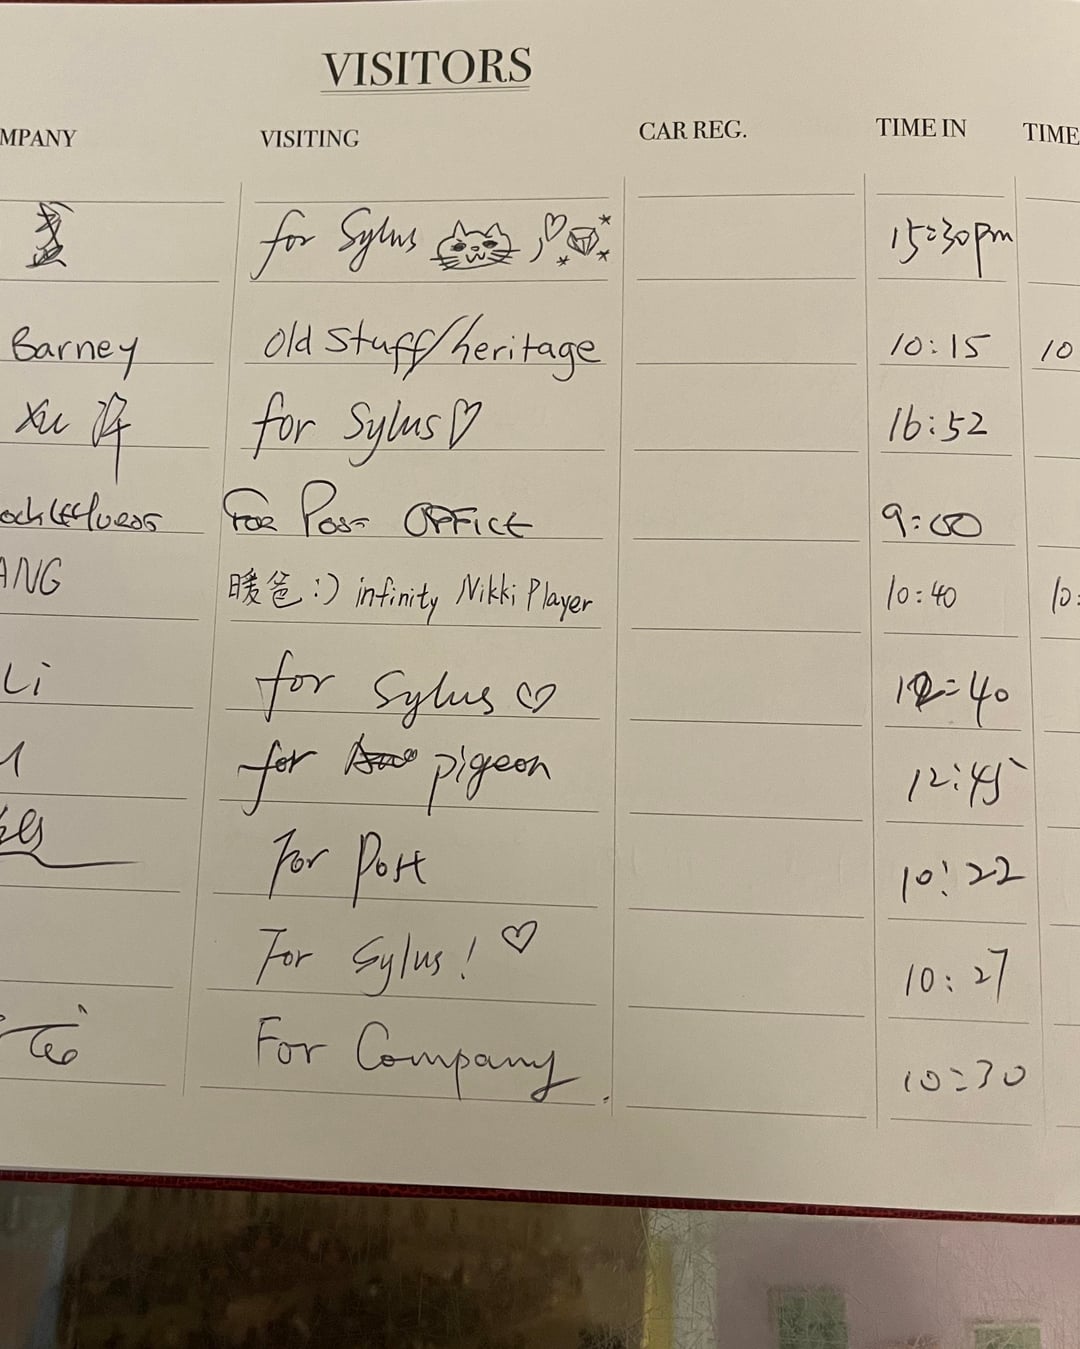 VISITORS
MPANY VISITING CAR REG. TIME IN TIME
for Sylus 15:30pm
Barney Old Stuff/heritage 10:15 10
Xu for Sylus♡ 16:52
For Post OFFICE 9:00
ANG 暖爸:) infinity Nikki Player 10:40 10:
Li for Sylus ♡ 12:40
for pigeon 12:45
For Post 10:22
For Sylus! ♡ 10:27
For Company. 10:30